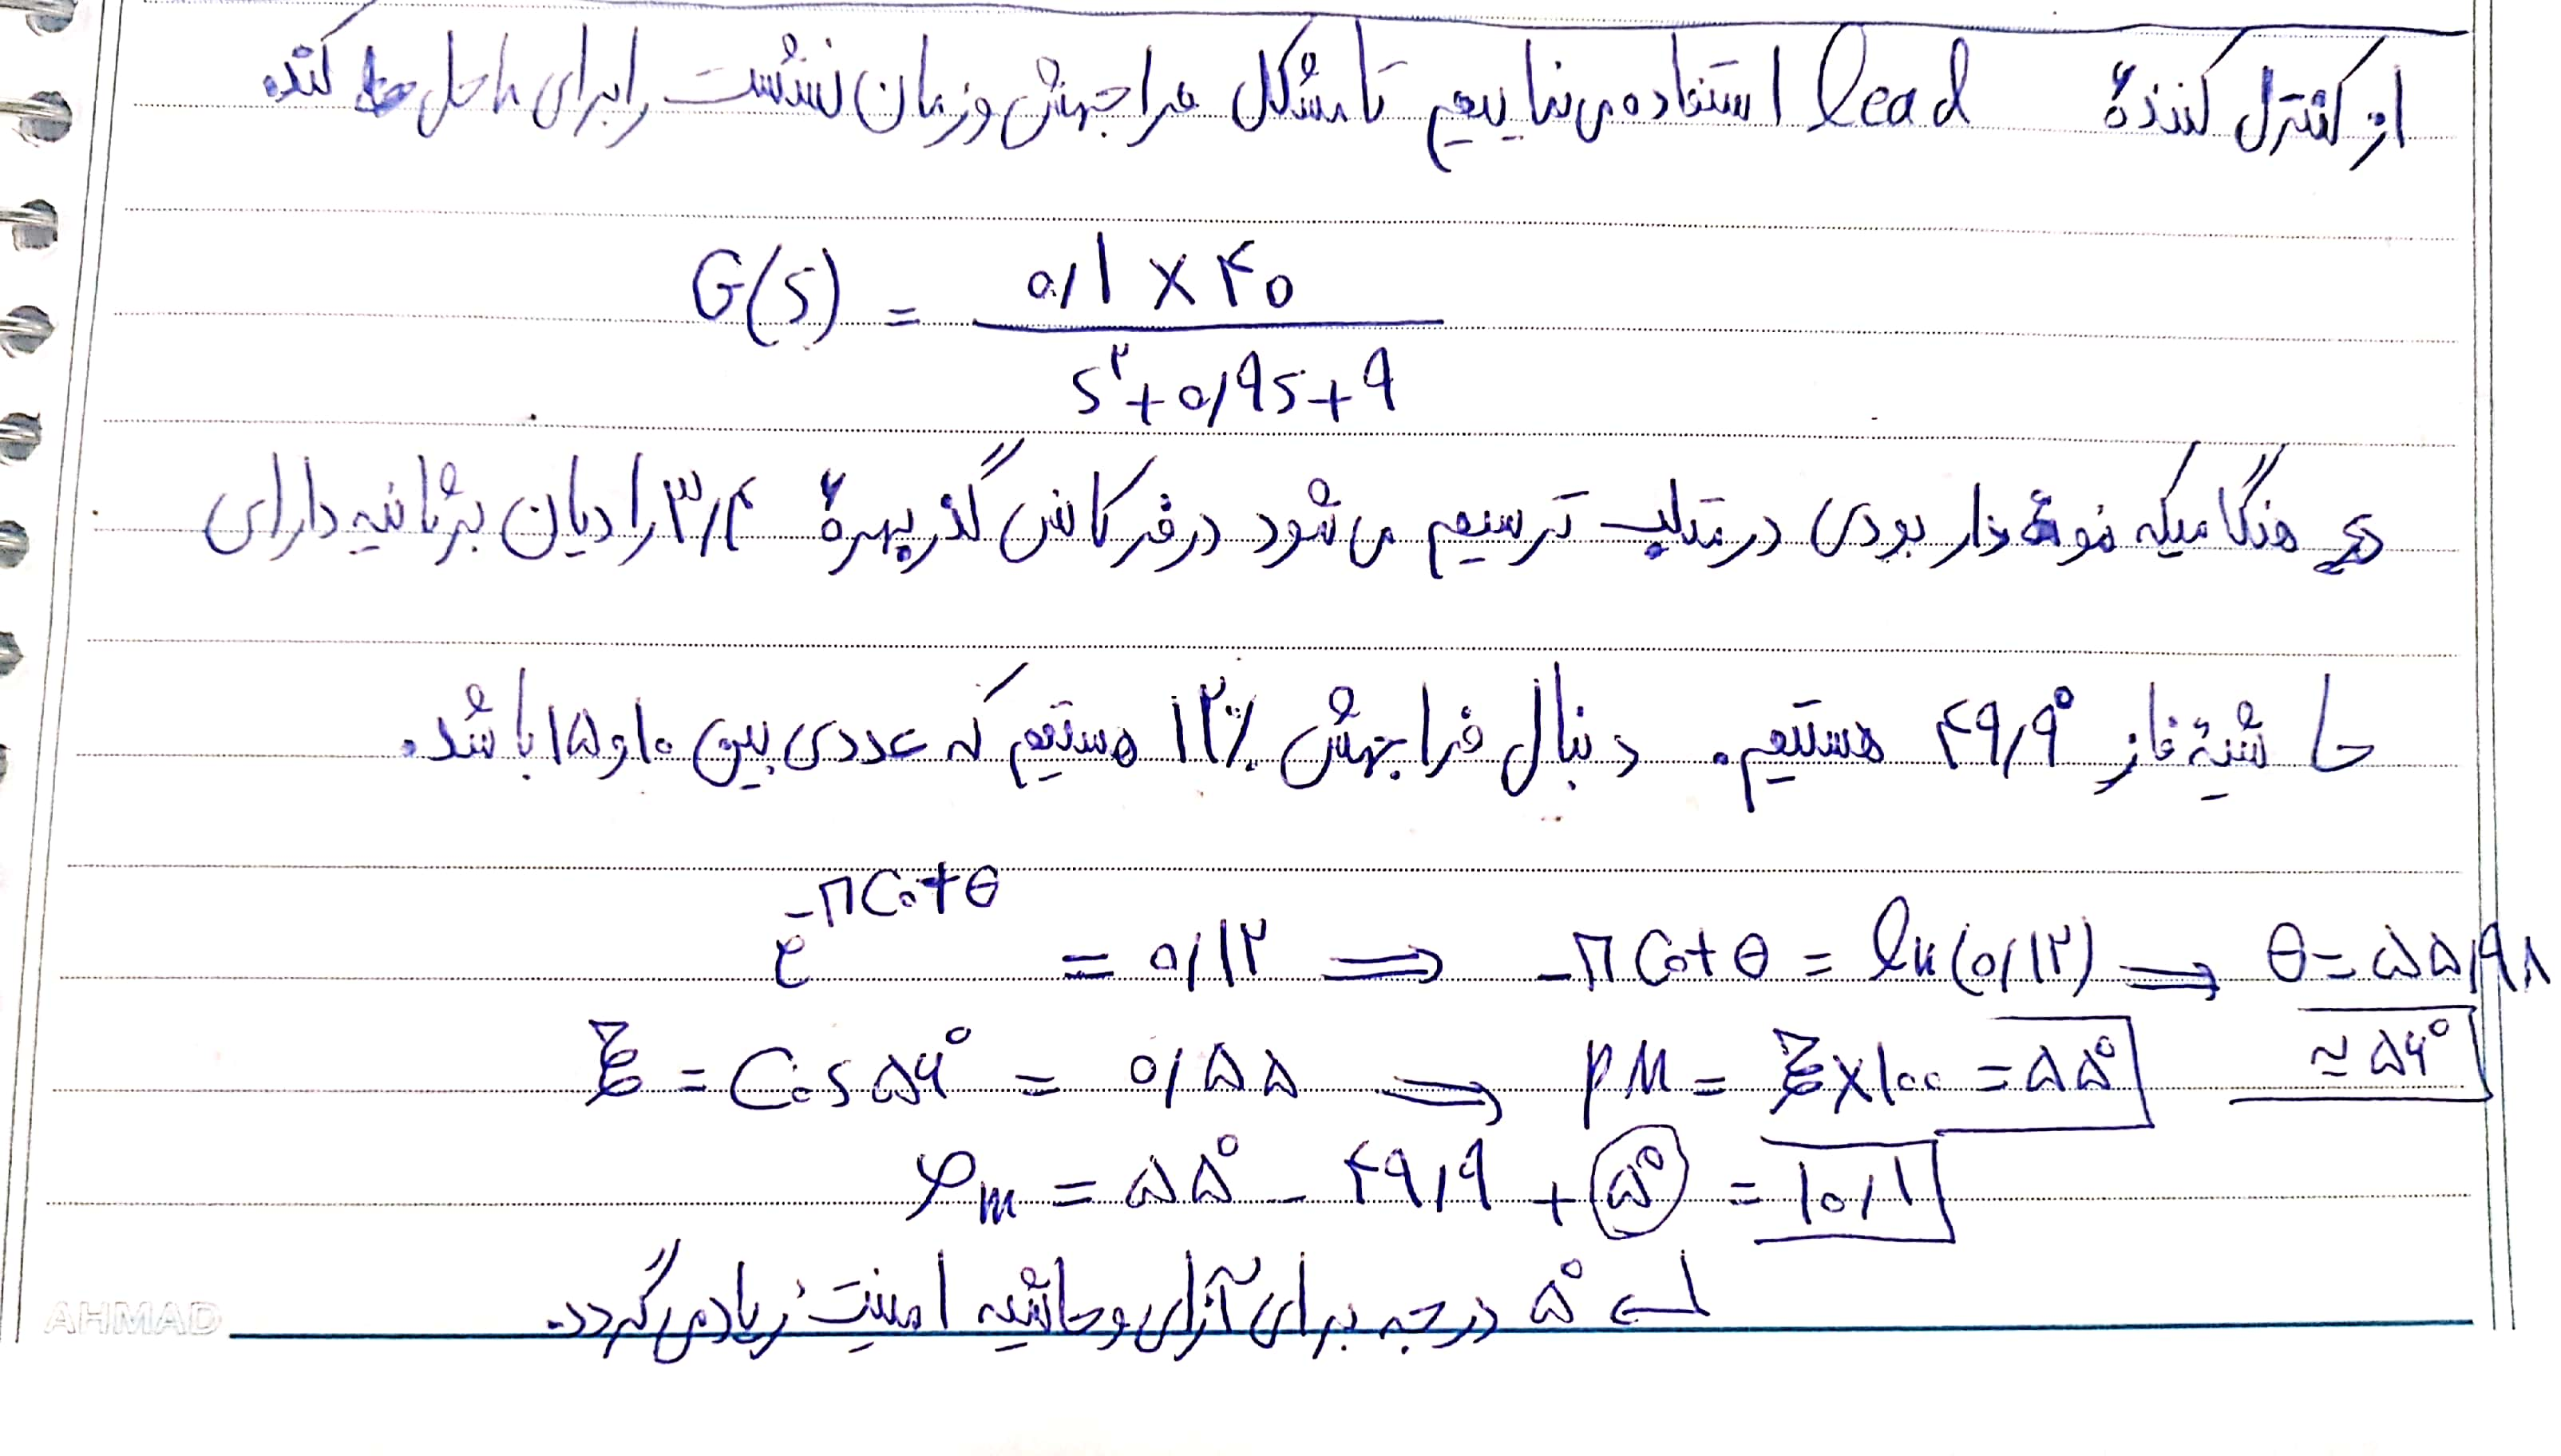 از کنترل کنندهٔ lead استفاده می نماییم تا مشکل فراجهش و زمان نشست را برای ما حل کند.
G(s) = ۰/۱ × ۴۰ / s^۲ + ۰/۹s + ۹
هنگامیکه نمودار بودی در متلب ترسیم می شود در فرکانس گذر بهرهٔ ۳/۴ رادیان بر ثانیه دارای
حاشیهٔ فاز ۴۹/۹° هستیم. دنبال فراجهش ۱۲٪ هستیم که عددی بین ۱۰ و ۱۵ باشد.
e^{-π Cot θ} = ۰/۱۲ ⟹ -π Cot θ = ln(۰/۱۲) ⟹ θ = ۵۵/۹۸
≃ ۵۶°
ξ = Cos ۵۶° = ۰/۵۵ ⟹ PM = ξ × ۱۰۰ = ۵۵°
φm = ۵۵° - ۴۹/۹ + ۵° = ۱۰/۱
۵° درجه برای حاشیه امنیت زیاد می گردد.
AHMAD